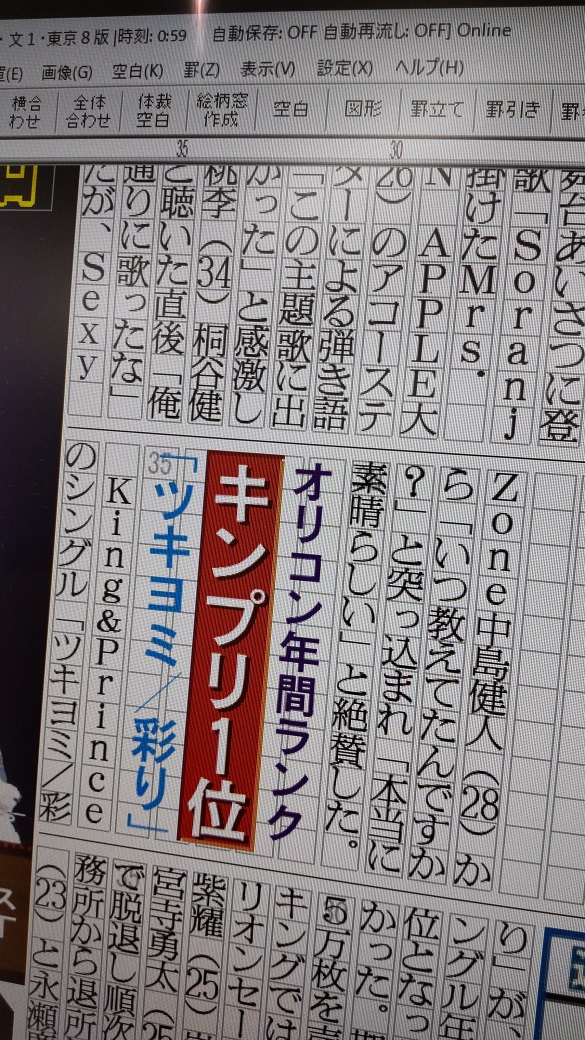 ・文1・東京8版 |時刻: 0:59 自動保存: OFF 自動再流し: OFF] Online
(E) 画像(G) 空白(K) 罫(Z) 表示(V) 設定(X) ヘルプ(H)
横合わせ 全体合わせ 体裁空白 絵柄窓作成 空白 図形 罫立て 罫引き 罫
35 30
舞台あいさつに登
歌「Soranj
掛けたMrs.
N APPLE大
26)のアコーステ
ターによる弾き語
「この主題歌に出
かった」と感激し
桃李(34)桐谷健
と聴いた直後「俺
通りに歌ったな」
たが、Sexy
Zone中島健人(28)か
ら「いつ教えてたんですか
?」と突っ込まれ「本当に
素晴らしい」と絶賛した。
オリコン年間ランク
キンプリ1位
35
「ツキヨミ/彩り」
King&Prince
のシングル「ツキヨミ/彩
り」が、
ングル年
位となっ
かった。
5万枚を
キングでは
リオンセー
紫耀(25)
宮寺勇太(25
で脱退し順次
務所から退所
(23)と永瀬